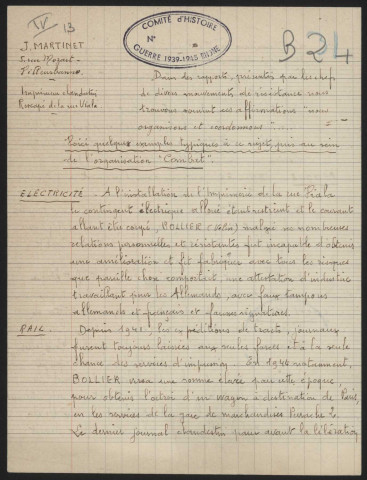 IV 13
COMITÉ d'HISTOIRE
GUERRE 1939-1945
N°
B 24
J. MARTINET
5 rue Mozart
Villeurbanne
Imprimeur clandestin
Rescapé de la rue Viala
Dans des rapports, présentés par les chefs
de divers mouvements de résistance nous
trouvons souvent ces affirmations "nous
organisons et coordonnons"
Voici quelques exemples typiques à ce sujet, pris au sein
de l'organisation "Combat".
ELECTRICITÉ. A l'installation de l'Imprimerie de la rue Viala
le contingent électrique alloué étant restreint et le courant
allant être coupé, BOLLIER (Vélin) malgré ses nombreuses
relations personnelles et résistantes fut incapable d'obtenir
une amélioration et fit fabriquer avec tous les risques
que pareille chose comportait, une attestation d'industrie
travaillant pour les Allemands, avec faux tampons
allemands et français et fausses signatures.
RAIL. Depuis 1941 les expéditions de tracts, journaux
furent toujours laissées aux seules forces et à la seule
chance des services d'imprimerie. En 1944 notamment,
BOLLIER versa une somme élevée pour cette époque
pour obtenir l'octroi d'un wagon à destination de Paris,
en les services de la gare de marchandises Perrache 2.
Le dernier journal clandestin paru avant la libération